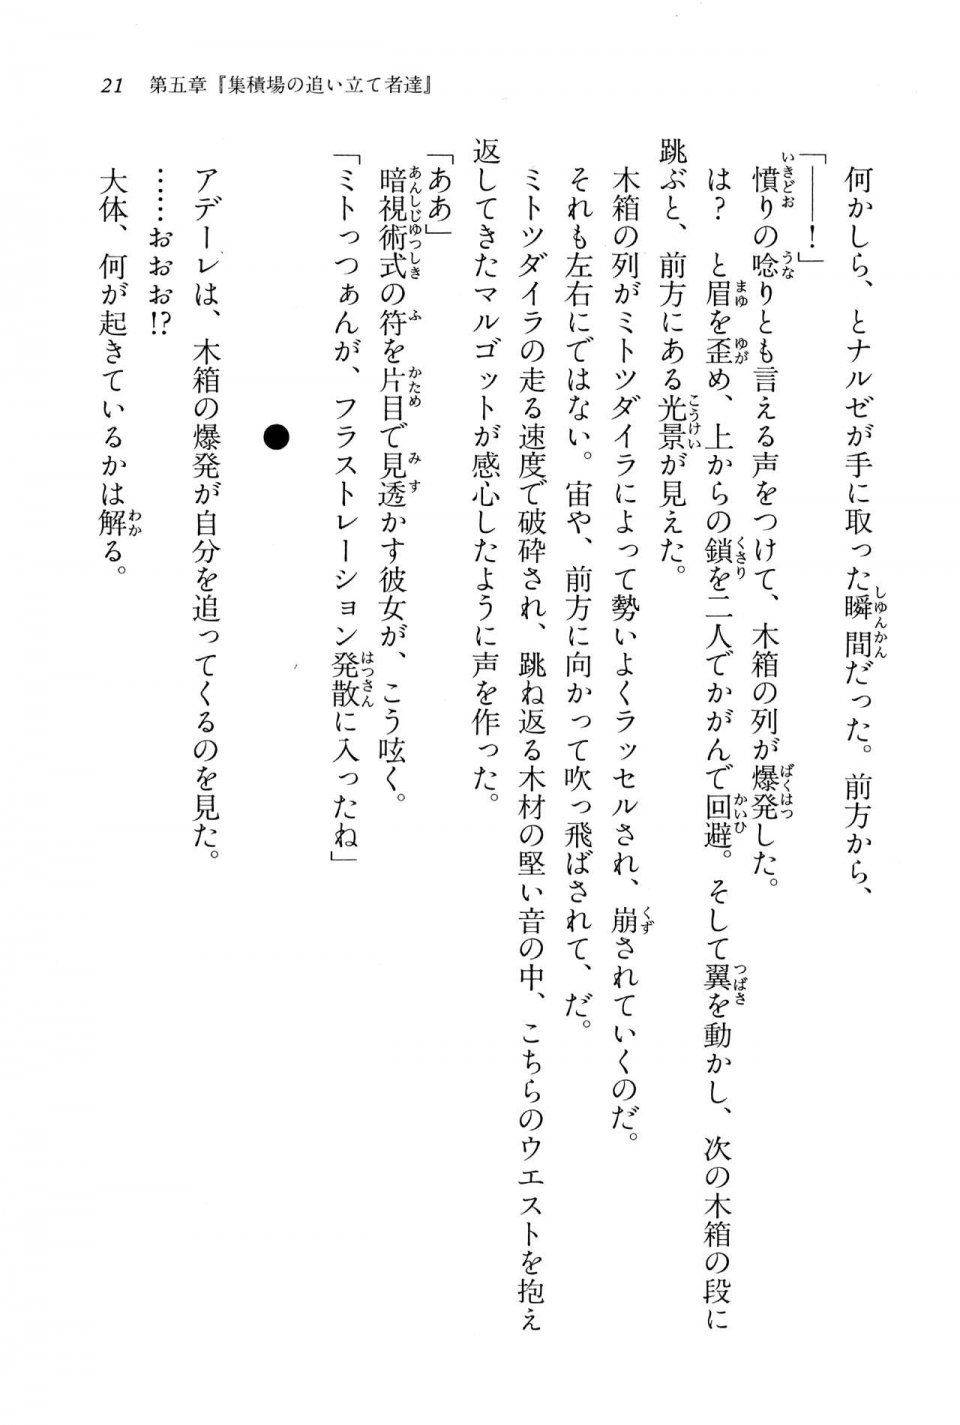 21　第五章『集積場の追い立て者達』
何かしら、とナルゼが手に取った瞬間だった。前方から、
「――！」
憤りの唸りとも言える声をつけて、木箱の列が爆発した。
は？　と眉を歪め、上からの鎖を二人でかがんで回避。そして翼を動かし、次の木箱の段に
跳ぶと、前方にある光景が見えた。
木箱の列がミトツダイラによって勢いよくラッセルされ、崩されていくのだ。
それも左右にではない。宙や、前方に向かって吹っ飛ばされて、だ。
ミトツダイラの走る速度で破砕され、跳ね返る木材の堅い音の中、こちらのウエストを抱え
返してきたマルゴットが感心したように声を作った。
「ああ」
暗視術式の符を片目で見透かす彼女が、こう呟く。
「ミトっつぁんが、フラストレーション発散に入ったね」
●
アデーレは、木箱の爆発が自分を追ってくるのを見た。
……おおお!?
大体、何が起きているかは解る。